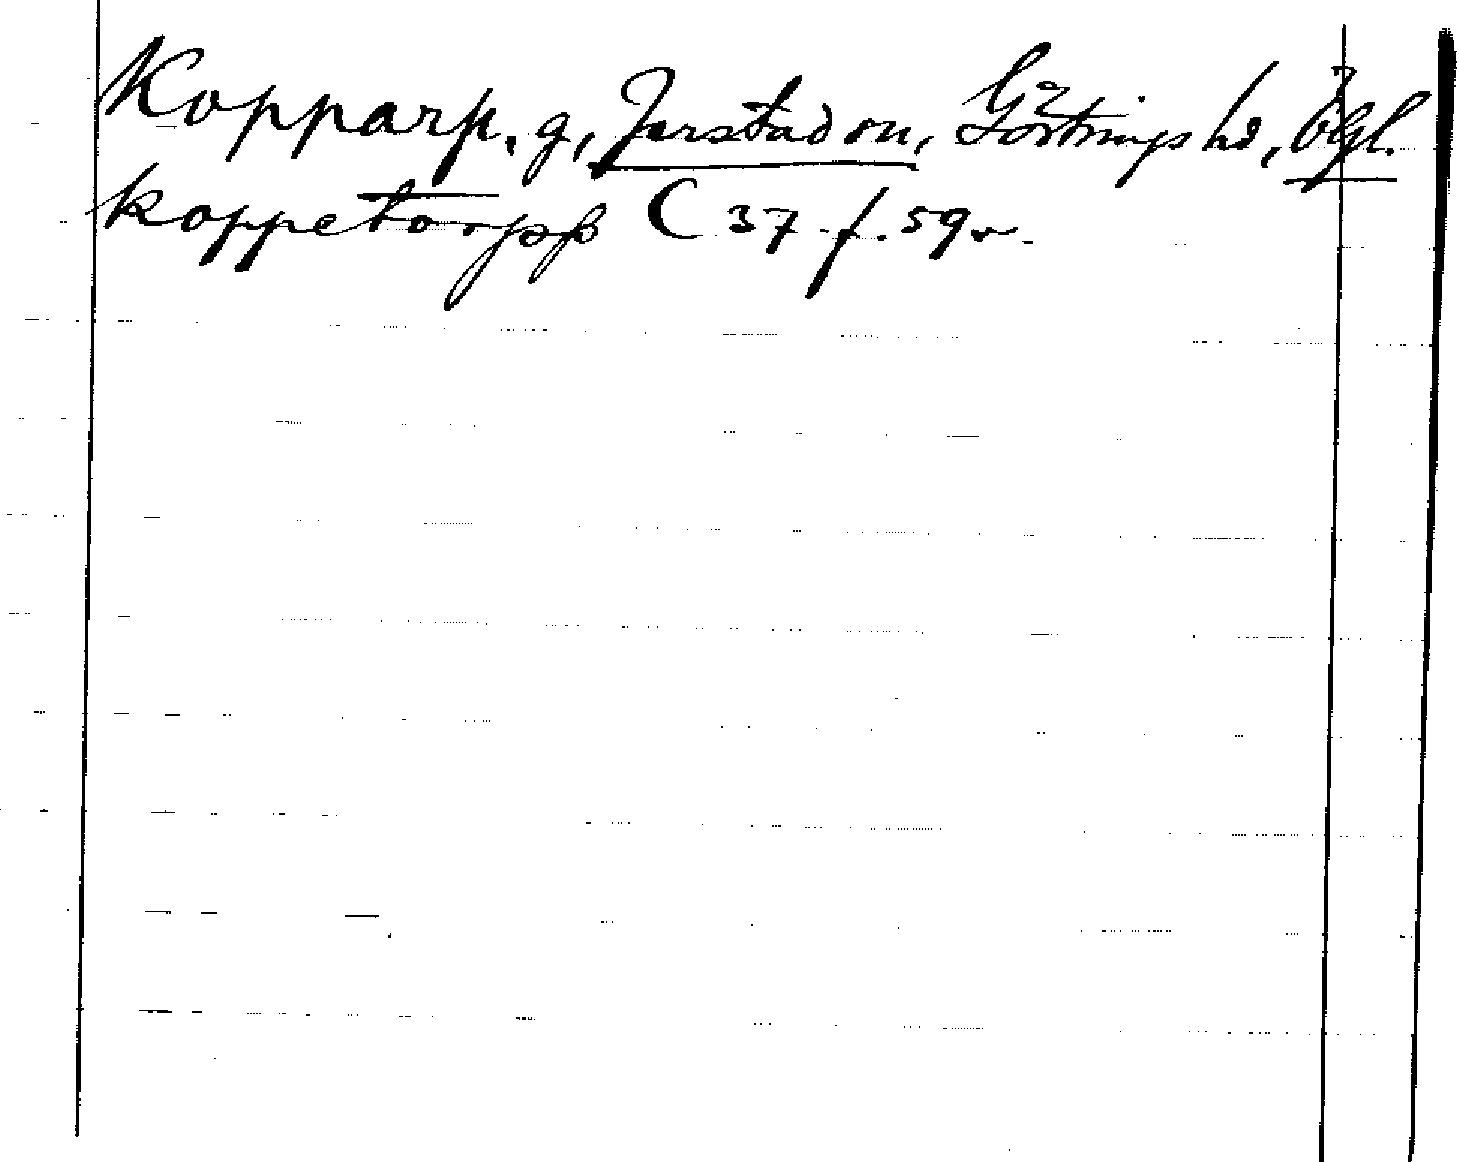 Kopparp, g, Järstad sn, Göstrings hd, Ögl.
koppetorpp C 37 f. 59v.